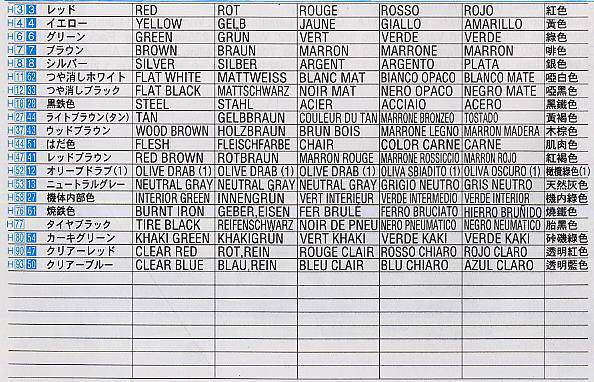 H3 3 レッド RED ROT ROUGE ROSSO ROJO 紅色
H4 4 イエロー YELLOW GELB JAUNE GIALLO AMARILLO 黃色
H6 6 グリーン GREEN GRÜN VERT VERDE VERDE 綠色
H7 7 ブラウン BROWN BRAUN MARRON MARRONE MARRON 啡色
H8 8 シルバー SILVER SILBER ARGENT ARGENTO PLATA 銀色
H11 62 つや消しホワイト FLAT WHITE MATTWEISS BLANC MAT BIANCO OPACO BLANCO MATE 啞白色
H12 33 つや消しブラック FLAT BLACK MATTSCHWARZ NOIR MAT NERO OPACO NEGRO MATE 啞黑色
H18 28 黒鉄色 STEEL STAHL ACIER ACCIAIO ACERO 黑鐵色
H27 44 ライトブラウン(タン) TAN GELBBRAUN COULEUR DU TAN MARRONE BRONZEO TOSTADO 黃褐色
H37 43 ウッドブラウン WOOD BROWN HOLZBRAUN BRUN BOIS MARRONE LEGNO MARRON MADERA 木棕色
H44 51 はだ色 FLESH FLEISCHFARBE CHAIR COLOR CARNE CARNE 肌肉色
H47 41 レッドブラウン RED BROWN ROTBRAUN MARRON ROUGE MARRONE ROSSICCIO MARRON ROJO 紅褐色
H52 12 オリーブドラブ(1) OLIVE DRAB (1) OLIVE DRAB (1) OLIVE DRAB (1) OLIVA SBIADITO (1) OLIVA OSCURO (1) 橄欖綠色(1)
H53 13 ニュートラルグレー NEUTRAL GRAY NEUTRAL GRAY NEUTRAL GRAY GRIGIO NEUTRO GRIS NEUTRO 天然灰色
H58 27 機体内部色 INTERIOR GREEN INNENGRUN VERT INTERIEUR VERDE INTERMEDIO VERDE INTERIOR 機內綠色
H76 61 焼鉄色 BURNT IRON GEBER,EISEN FER BRULE FERRO BRUCIATO HIERRO BRUÑIDO 燒鐵色
H77 タイヤブラック TIRE BLACK REIFENSCHWARZ NOIR DE PNEU NERO PNEUMATICO NEGRO NEUMATICO 胎黑色
H80 54 カーキグリーン KHAKI GREEN KHAKIGRUN VERT KHAKI VERDE KAKI VERDE KAKI 砵磯綠色
H90 47 クリアーレッド CLEAR RED ROT,REIN ROUGE CLAIR ROSSO CHIARO ROJO CLARO 透明紅色
H93 50 クリアーブルー CLEAR BLUE BLAU,REIN BLEU CLAIR BLU CHIARO AZUL CLARO 透明藍色